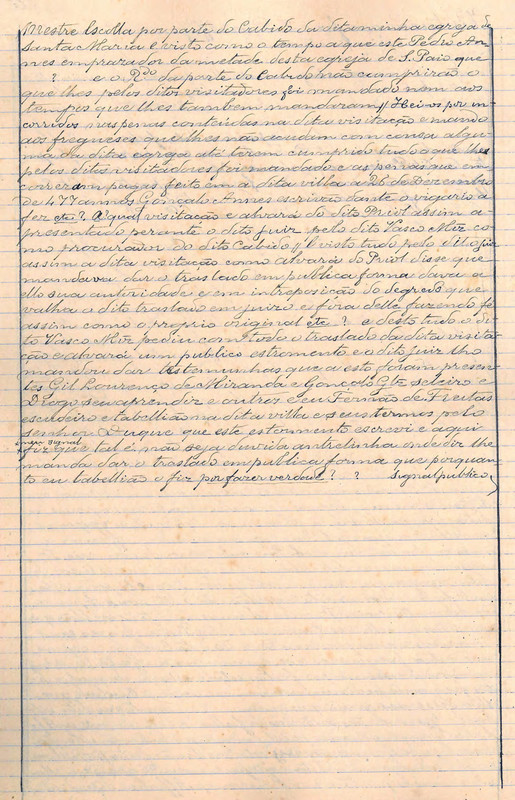 Mestre Escolla por parte do Cabido da dita minha egreja de
Santa Maria e visto como o tempo a que este Pedro An-
nes emprazador da metade desta egreja de S. Paio que
? e o R.do da parte do Cabido não cumprirão o
que lhes pelos ditos visitadores foi mandado nem aos
tempos que lhes tambem mandaram // Hei vos por in-
corridos nas penas contendas na dita visitação e mando
aos freguezes que lhes não acudam com cousa algu-
ma da dita egreja até terem cumprido tudo o que lhes
pelos ditos visitadores foi mandado e as penas que em
correram pagas feito em a dita villa a 26 de Dezembro
de 477 annos Gonçalo Annes escrivão dante o vigario a
fez etc? A qual visitação e alvará do dito Priol assim a-
presentado perante o dito juiz pelo dito Vasco Miz co-
mo procurador do dito Cabido // E visto tudo pelo dito juiz
assim a dita visitação como alvará do Priol disse que
mandava dar o traslado em publica forma dava a
ello sua autoridade e em intreposição do degredo que
valha o dito traslado em juizo e fóra delle fazendo fé
assim como o proprio original etc? e desto tudo o di-
to Vasco Miz pediu com todo o traslado da dita visita-
ção e alvará um publico estromento e o dito juiz lho
mandou dar testemunhas que a esto foram presen-
tes Gil Lourenço de Miranda e Gonçalo Glz seleiro e
Diogo seu aprendiz e outros e eu Fernão de Freitas
escudeiro e tabellião na dita villa e seus termos pelo
senhor Duque que este estormento escrevi e aqui
meu signal
fiz que tal é não seja duvida antrelinha onde diz lhe
manda dar o traslado em publica forma que porquan-
to eu tabellião o fiz por fazer verdade? ? Signal publico